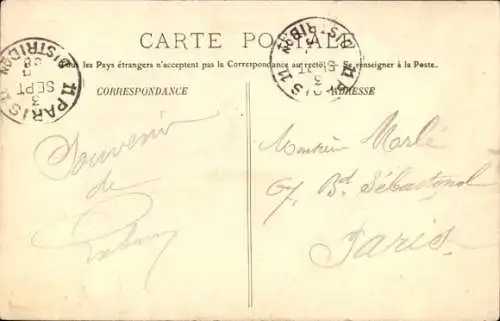 CARTE POSTALE
Tous les Pays étrangers n'acceptent pas la Correspondance au recto. Se renseigner à la Poste.
CORRESPONDANCE
ADRESSE
PARIS 11
DISTRIBON
3
SEPT
11 PARIS 11
DISTRIBON
3
SEPT
Souvenir
de
Monsieur Marlé
67, Bd. Sébastopol
Paris